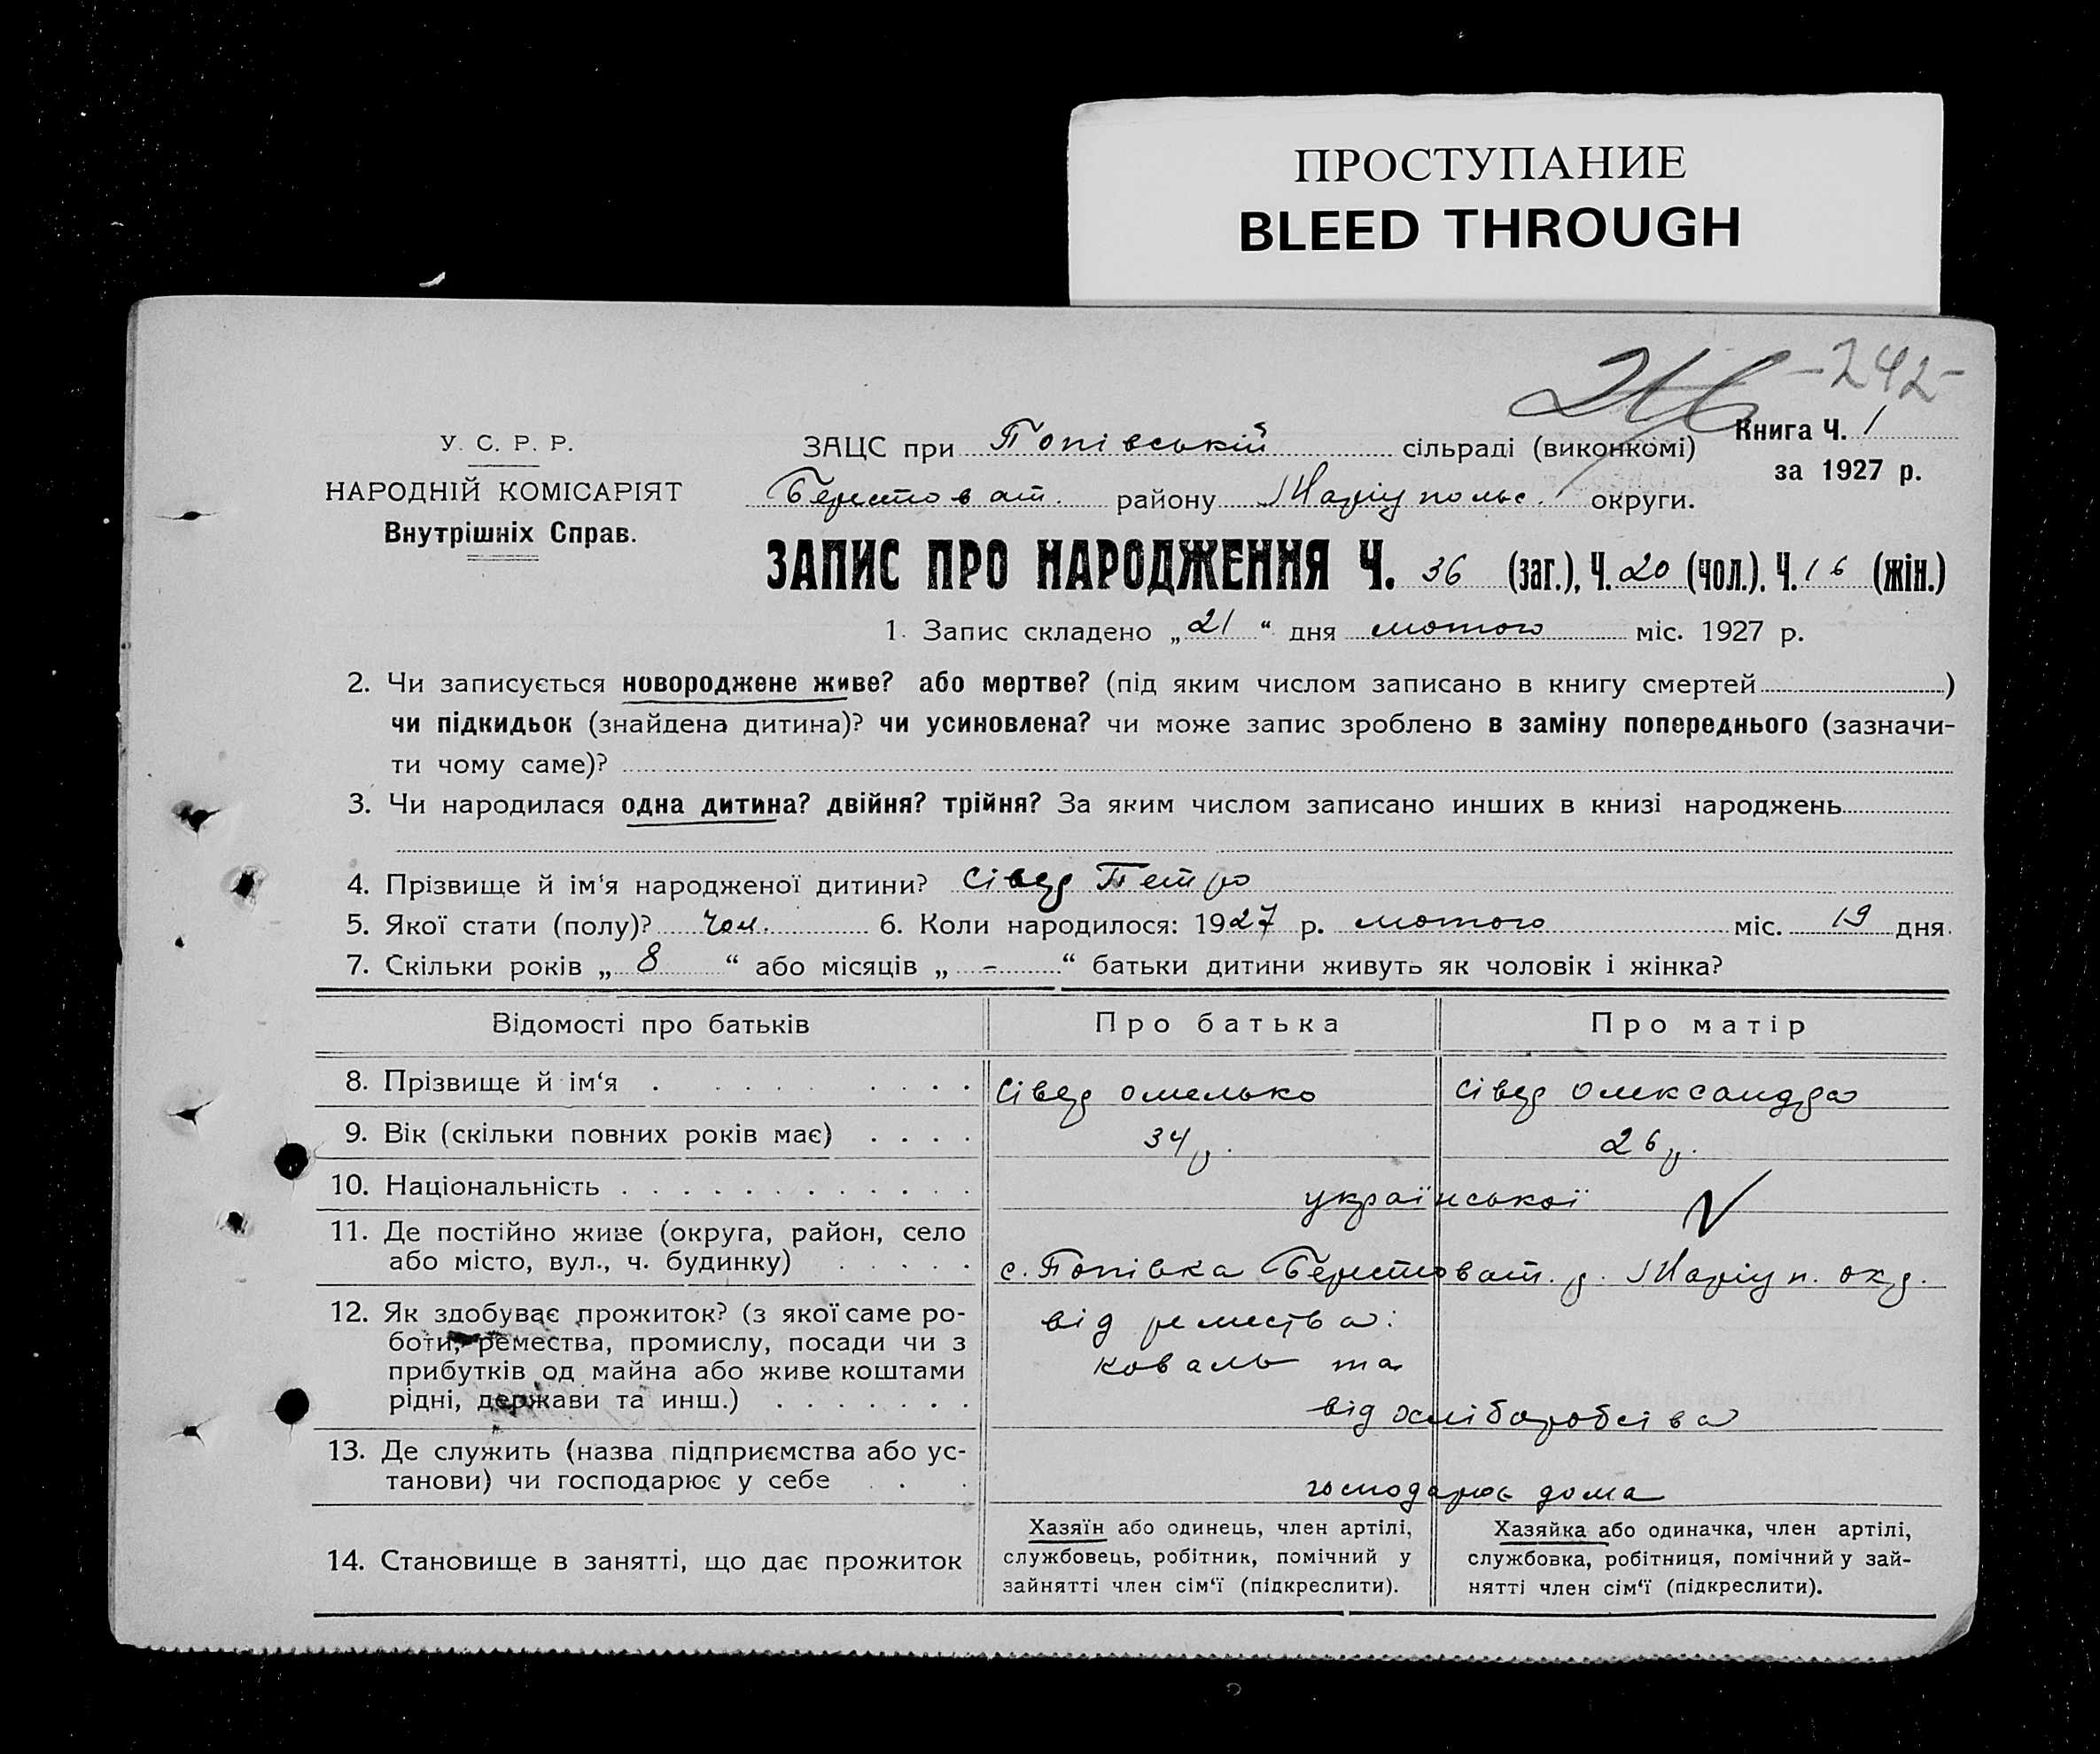 ПРОСТУПАНИЕ
BLEED THROUGH
-242-
У. С. Р. Р.
НАРОДНІЙ КОМІСАРІЯТ
Внутрішніх Справ.
ЗАЦС при Попівській сільраді (виконкомі)
Книга Ч. 1
за 1927 р.
Берестоват. району Маріупольс. округи.
ЗАПИС ПРО НАРОДЖЕННЯ Ч. 36 (заг.), Ч. 20 (чол.). Ч. 16 (жін.)
1. Запис складено „21“ дня лютого міс. 1927 р.
2. Чи записується новороджене живе? або мертве? (під яким числом записано в книгу смертей)
чи підкидьок (знайдена дитина)? чи усиновлена? чи може запис зроблено в заміну попереднього (зазначи-
ти чому саме)?
3. Чи народилася одна дитина? двійня? трійня? За яким числом записано инших в книзі народжень
4. Прізвище й ім‘я народженої дитини? Сівер Петро
5. Якої стати (полу)? чол. 6. Коли народилося: 1927 р. лютого міс. 19 дня.
7. Скільки років „8“ або місяців „-“ батьки дитини живуть як чоловік і жінка?
Відомості про батьків Про батька Про матір
8. Прізвище й ім‘я Сівер Омелько Сівер Олександра
9. Вік (скільки повних років має) 34 р. 26 р.
10. Національність української
11. Де постійно живе (округа, район, село
або місто, вул., ч. будинку) с. Попівка Берестоват. р. Маріуп. окр.
12. Як здобуває прожиток? (з якої саме ро-
боти, ремества, промислу, посади чи з
прибутків од майна або живе коштами
рідні, держави та инш.)
від ремества:
коваль та
від хліборобства
13. Де служить (назва підприємства або ус-
танови) чи господарює у себе
господарює дома
14. Становище в занятті, що дає прожиток
Хазяїн або одинець, член артілі,
службовець, робітник, помічний у
зайнятті член сім‘ї (підкреслити).
Хазяйка або одиначка, член артілі,
службовка, робітниця, помічний у зай-
нятті член сім‘ї (підкреслити).